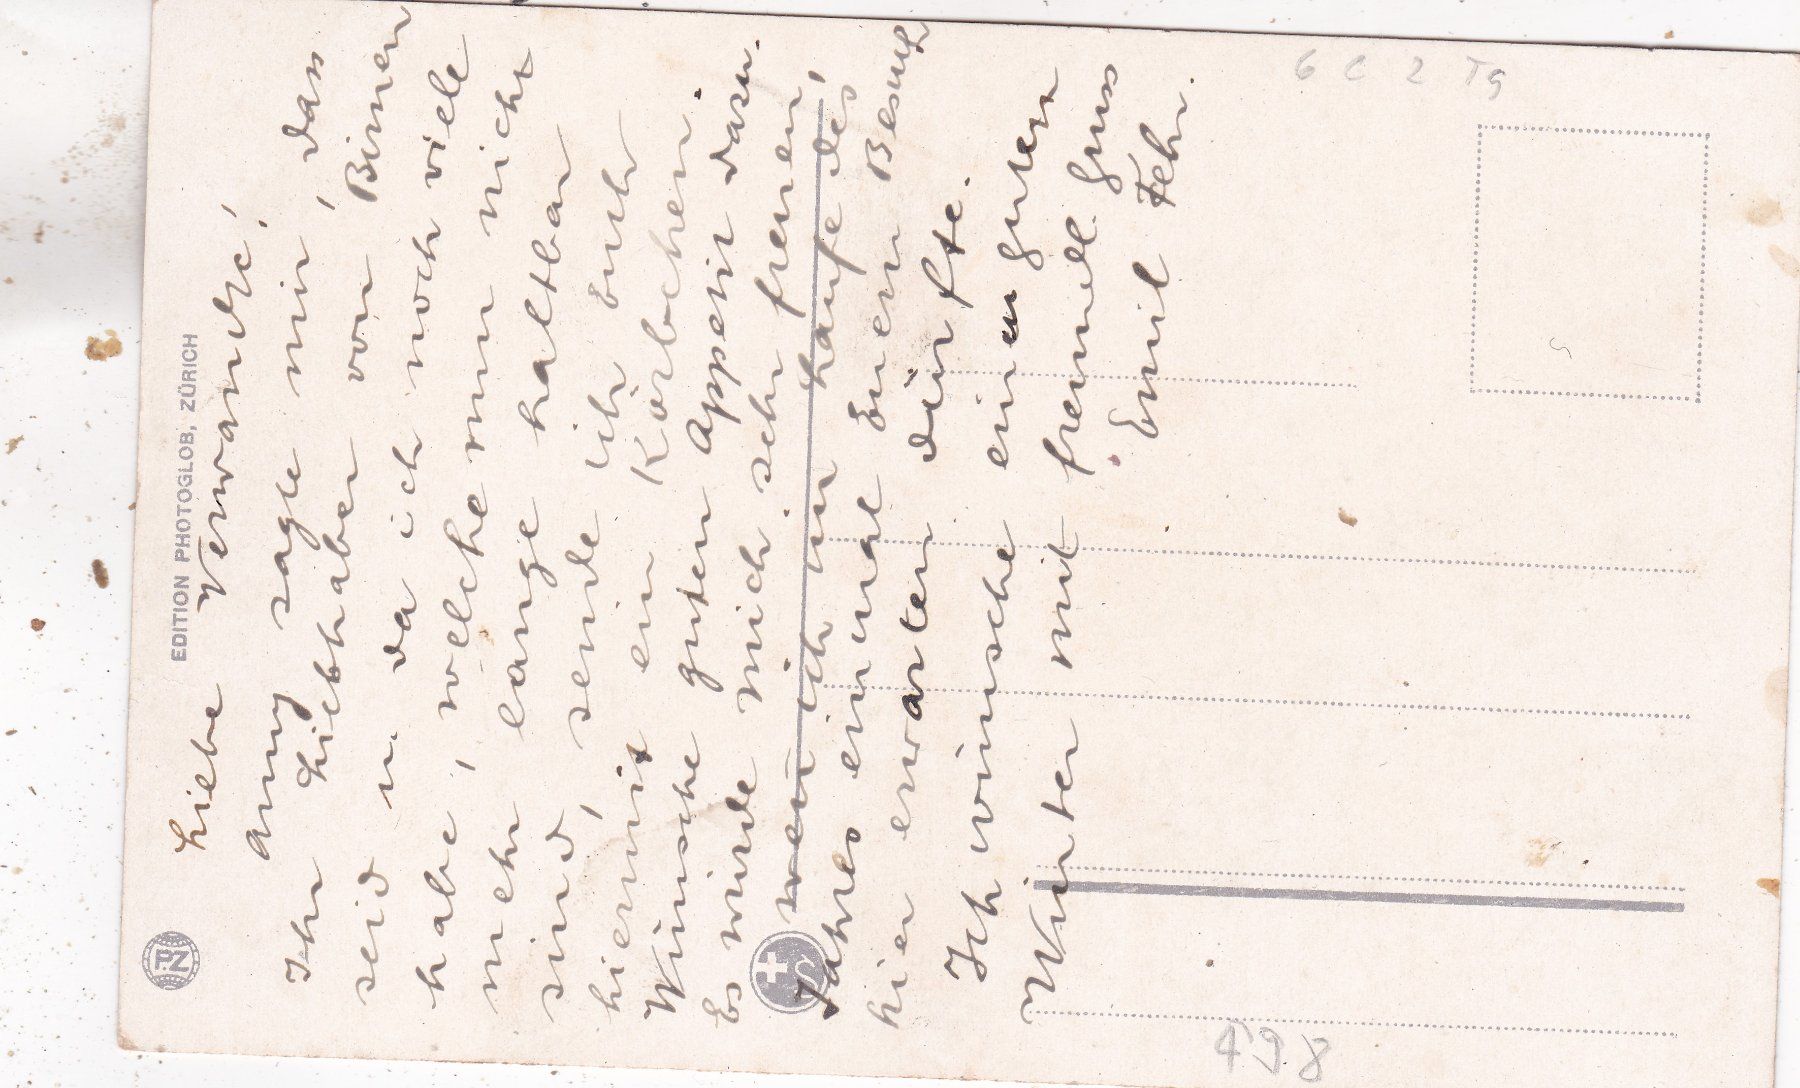 EDITION PHOTOGLOB, ZÜRICH
Liebe Verwandte!
Anny sagte mir, dass
Ihr Liebhaber von Birnen
seid u. da ich noch viele
habe, welche nun nicht
mehr lange haltbar
sind, sende ich Euch
hiermit ein Körbchen.
Wünsche guten Appetit dazu.
Es würde mich sehr freuen,
wen ich im Laufe des
Jahres einmal Euern Besuch
hier erwarten dürfte.
Ich wünsche einen guten
Winter mit freundl. Gruss
Emil Fehr.
498